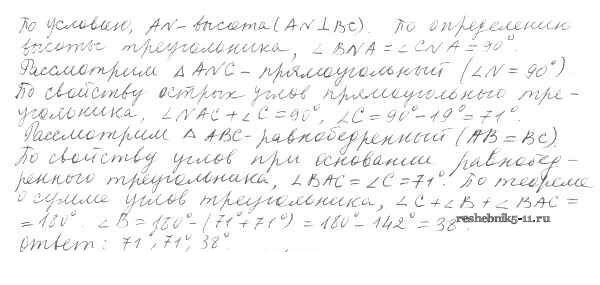 По условию, AN - высота (AN ⊥ BC). По определению
высоты треугольника, ∠BNA = ∠CNA = 90°.
Рассмотрим △ANC - прямоугольный (∠N = 90°)
По свойству острых углов прямоугольного тре-
угольника, ∠NAC + ∠C = 90°, ∠C = 90° - 19° = 71°.
Рассмотрим △ABC - равнобедренный (AB = BC).
По свойству углов при основании равнобед-
ренного треугольника, ∠BAC = ∠C = 71°. По теореме
о сумме углов треугольника, ∠C + ∠B + ∠BAC =
= 180°. ∠B = 180° - (71° + 71°) = 180° - 142° = 38°.
reshebnik5-11.ru
Ответ: 71°, 71°, 38°.